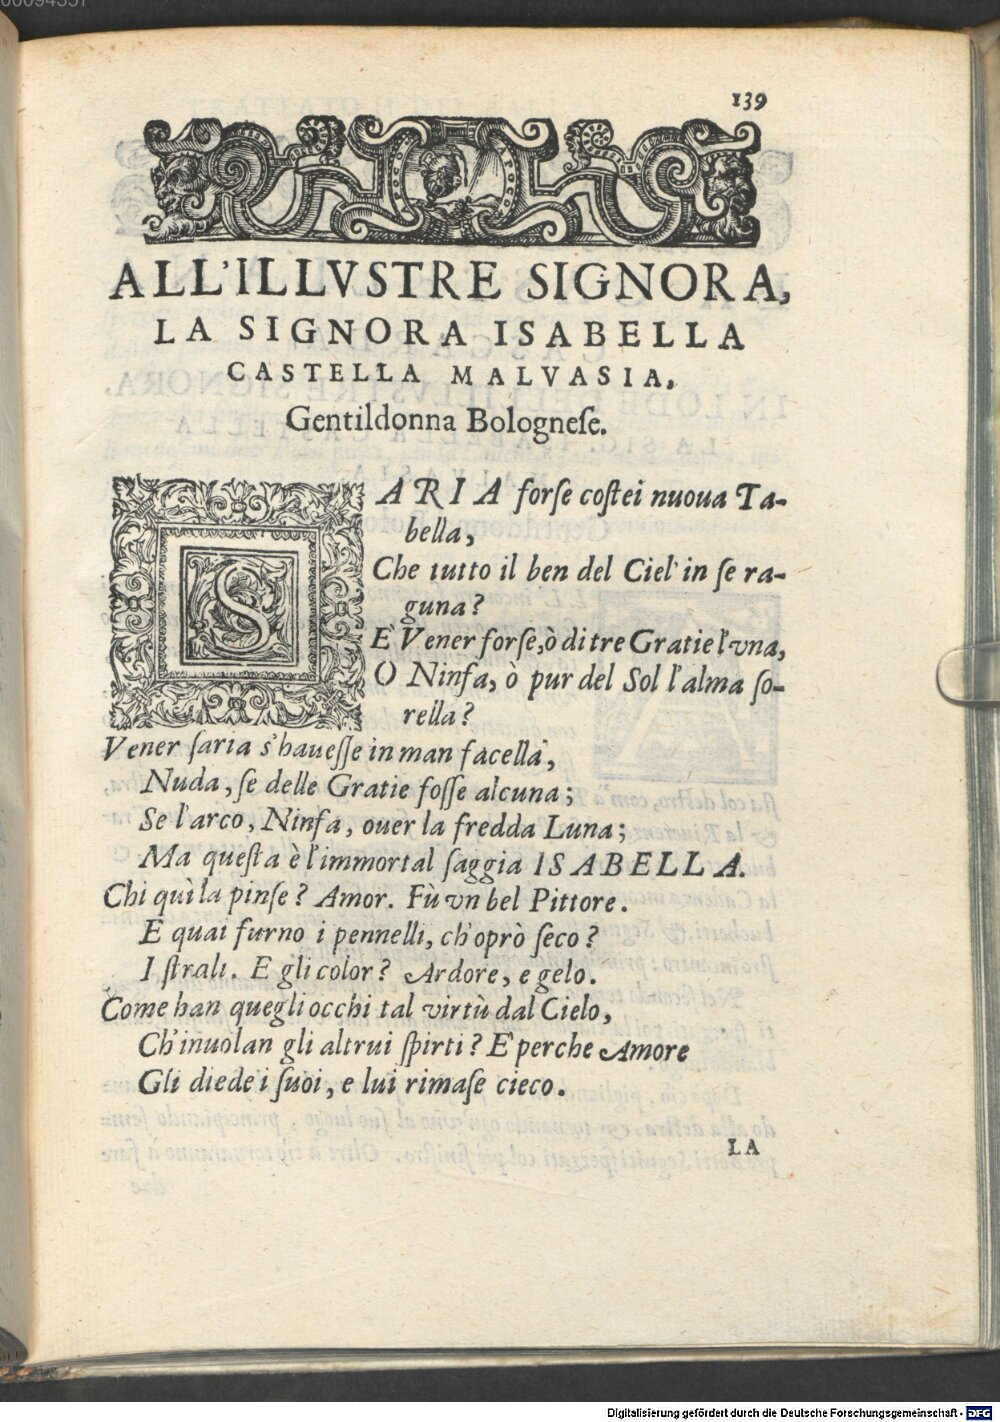 139
ALL'ILLVSTRE SIGNORA,
LA SIGNORA ISABELLA
CASTELLA MALVASIA,
Gentildonna Bologneſe.
SARIA forſe coſtei nuoua Ta-
bella,
Che tutto il ben del Ciel' in ſe ra-
guna?
E' Vener forſe, ò di tre Gratie l'vna,
O Ninfa, ò pur del Sol l'alma ſo-
rella?
Vener ſaria s'haueſſe in man facella,
Nuda, ſe delle Gratie foſſe alcuna;
Se l'arco, Ninfa, ouer la fredda Luna;
Ma queſta è l'immortal ſaggia ISABELLA.
Chi quì la pinſe? Amor. Fù vn bel Pittore.
E quai furno i pennelli, ch'oprò ſeco?
I ſtrali. E gli color? Ardore, e gelo.
Come han quegli occhi tal virtù dal Cielo,
Ch'inuolan gli altrui ſpirti? E' perche Amore
Gli diede i ſuoi, e lui rimaſe cieco.
LA
Digitalisierung gefördert durch die Deutsche Forschungsgemeinschaft - DFG